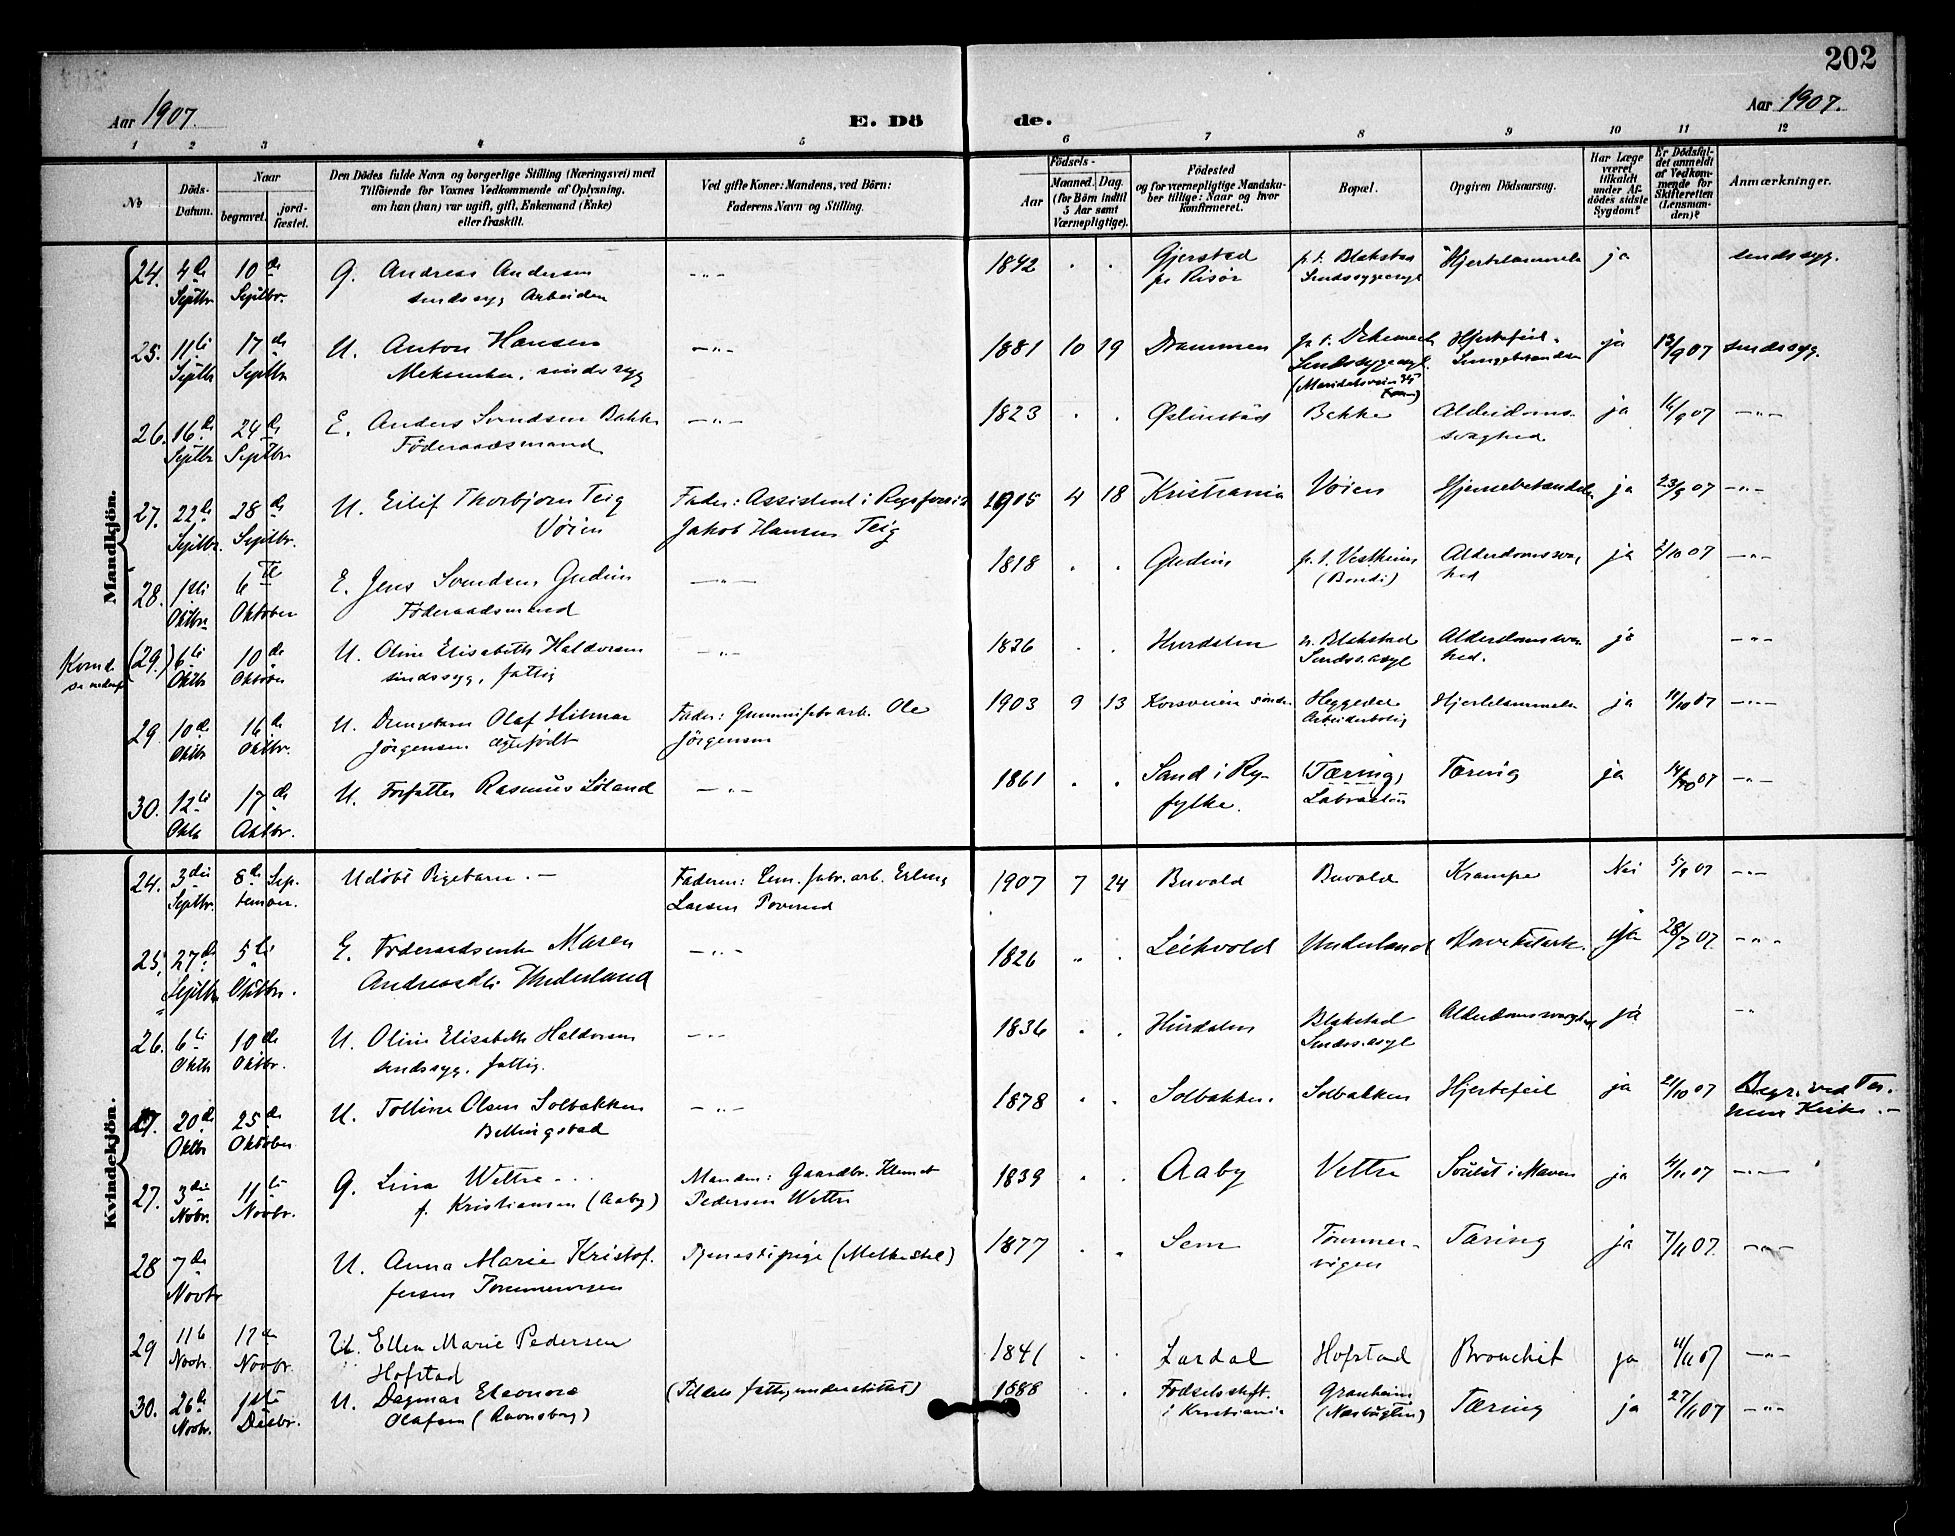 202
Aar 1907.
E. Dö
de.
Aar 1907.
1 2 3 4 5 6 7 8 9 10 11 12
No
Döds-Datum.
Naar
begravet.
jord-fæstet.
Den Dödes fulde Navn og borgerlige Stilling (Næringsvei) med
Tilföiende for Voxnes Vedkommende af Oplysning,
om han (hun) var ugift, gift, Enkemand (Enke)
eller fraskilt.
Ved gifte Koner: Mandens, ved Börn:
Faderens Navn og Stilling.
Födsels-
Aar
Maaned. Dag.
(for Börn indtil
5 Aar samt
Værnepligtige).
Födested
og for værnepligtige Mandska-
ber tillige: Naar og hvor
konfirmeret.
Bopæl.
Opgiven Dödsaarsag.
Har Læge
været
tilkaldt
under Af-
dödes sidste
Sygdom?
Er Dödsfal-
det anmeldt
af Vedkom-
mende for
Skifteretten
(Lensman-
den)?
Anmærkninger.
Mandkjön.
24. 4de Septbr. 10de Septbr. G. Andreas Andersen
sindssyg Arbeider
—"— 1842 . . Gjerstad
pr Risør
p.t. Blakstad
Sindssygeasyl
Hjertelammelse ja sindssyg.
25. 11te Septbr 17de Septbr U. Anton Hansen
Mekaniker, sindssyg
—"— 1881 10 19 Drammen
Sindssygeasyl.
(Maridalsveien 35
Hjertefeil.
Lungebetændelse
ja 13/9 07 sindssyg.
26. 16de Septbr 24de Septbr. E. Anders Svendsen Bakke
Föderaadsmand
—"— 1823 . . Bekke
Alderdoms-
svaghed
ja 16/9 07 —"—
27. 22de Septbr. 28de Septbr. U. Eilif Thorbjørn Teig
Vøien
Fader: Assistent i
Jakob Hansen Teig
1905 4 18 Kristiania Vøien Hjernebetændelse ja 23/9 07 —"—
28. 1ste Oktbr. 6te Oktober E. Jens Svendsen Gudim
Föderaadsmand
—"— 1818 . . Gudim
p.t. Vestheim
(Bondi)
Alderdomssvag-
hed
ja 2/10 07 —"—
Kvinde
se nedenf
(29.) 6te Oktbr 10de Oktober U. Oline Elisabeth Haldorsen
sindssyg, fattig
—"— 1836 . . Hurdalen
Blakstad
Sindss.asyl
Alderdomssvag-
hed.
ja —"—
29. 10de Oktbr 16de Oktbr. U. Drengebarn Olaf Hilmar
Jörgensen ægtefødt
Fader: Gummifabr.arb. Ole
Jörgensen
1903 9 13 Korsveien søndre
Heggedal
Arbeiderbolig
Hjertelammelse ja 11/10 07 —"—
30. 12te Oktb 17de Oktbr. U. Forfatter Rasmus Löland —"— 1861 . . Sand i Ry-
fylke.
(Tæring)
Labraaten
Tæring ja 14/10 07 —"—
Kvindekjön.
24. 3die Septbr. 8de Sep.
tember.
Udöbt Pigebarn. —
Faderen: Cem. fabr. arb. Erling
Larsen
1907 7 24 Buvold Buvold Krampe Nei 5/9 07 —"—
25. 27de Septbr 5te Oktbr. E. Föderaadsenke Maren
Andreasdtr Underland
—"— 1826 " . Leikvold Underland Mavekatark. ja 28/9 07. —"—
26. 6te Oktb 10de Oktbr. U. Oline Elisabeth Haldorsen
sindssyg, fattig.
—"— 1836 . . Hurdalen
Blakstad
Sindss.asyl
Alderdomssvaghed ja "
27. 20de Oktbr 25de Oktober U. Tolline Olsen Solbakken
Billingstad
—"— 1878 . . Solbakken. Solbakken Hjertefeil ja 21/10 07 Begr. ved Ta-
num Kirke. —
27. 3die Nobr. 11te Novbr. G. Lina Wettre
f. Kristiansen (Aaby)
Manden: Gaardbr. Klemet
Pedersen Wettre
1839 . . Aaby Vettre Svulst i Maven ja 4/11 07 —"—
28 7de Novbr U. Anna Marie Kristof-
fersen Tømmervigen
Tjenestepige (Melkestel) 1877 . " Sem
Tömmer-
vigen
Tæring ja 7/11 07. —"—
29 11te Novbr. 17de Novbr. U. Ellen Marie Pedersen
Hofstad
1841 . . Lardal Hofstad Bronchit ja 11/11 07 —"—
30. 26de Novbr. 1ste Decbr. U. Dagmar Eleonore
Olafsen (Ravnsborg)
fattigunderstöttet)
1888 . . Födselsstift.
i Kristiania
Granheim
(Næsbugten)
Tæring ja 27/11 07 —"—